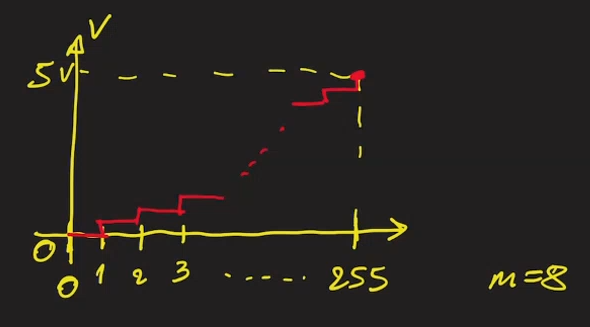 V
5V
0
0 1 2 3 ..... 255
m=8